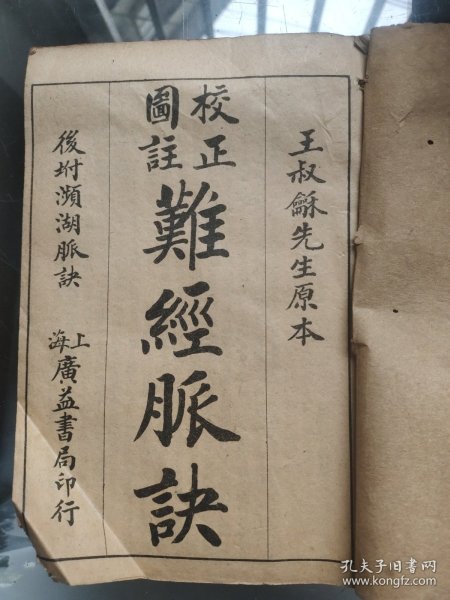 王叔龢先生原本
校正
圖註
難經脈訣
後坿瀕湖脈訣
上海廣益書局印行
孔夫子旧书网
www.kongfz.com